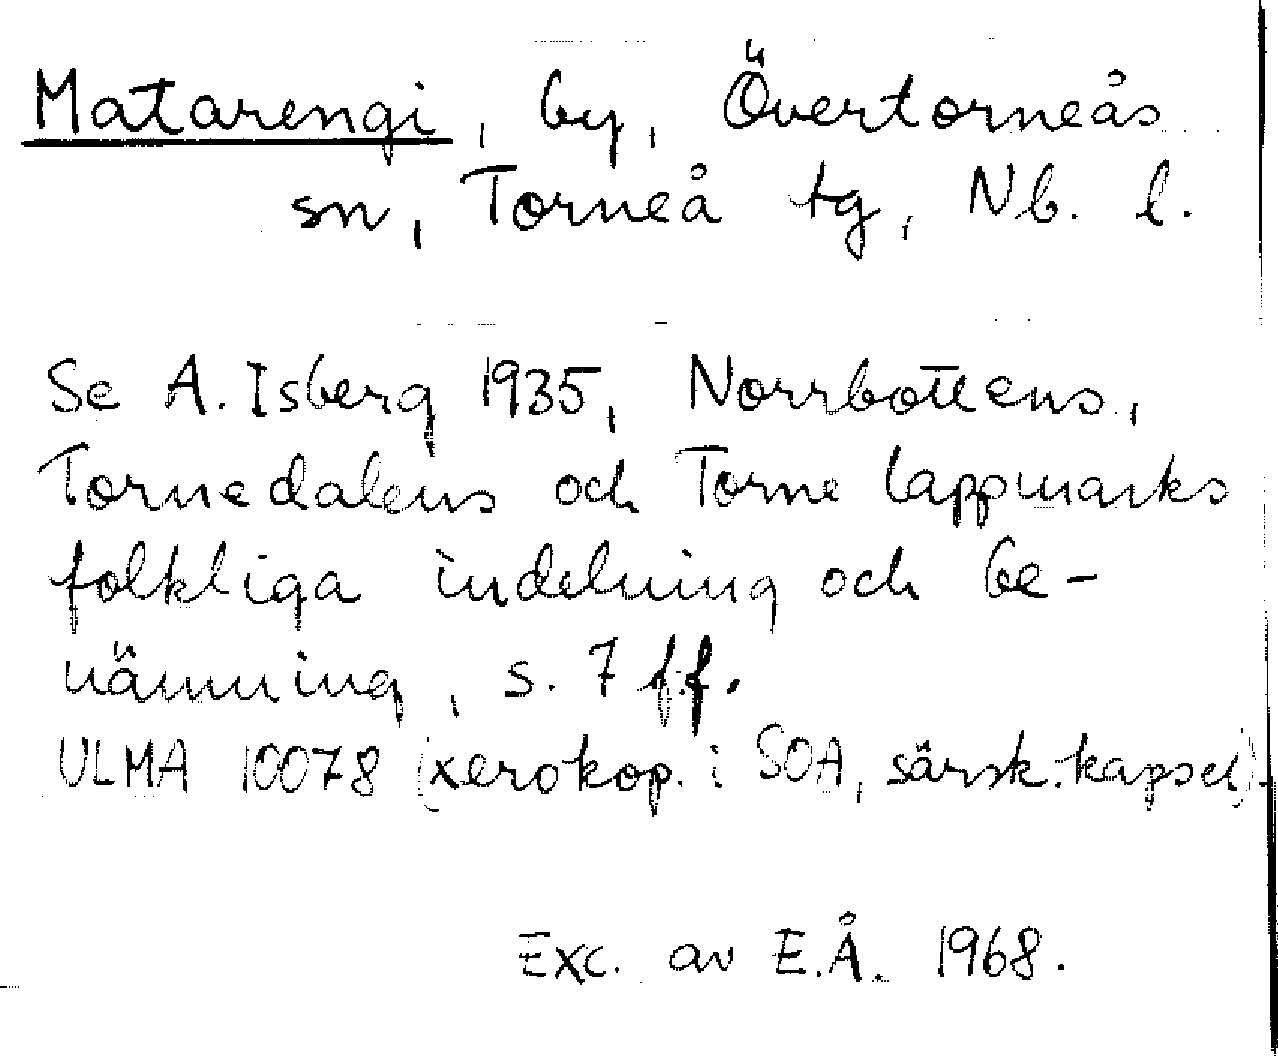 Matarengi, by, Övertorneås
sn, Torneå tg, Nb. l.
Se A. Isberg 1935, Norrbottens,
Tornedalens och Torne lappmarks
folkliga indelning och be-
nämning, s. 7 ff.
ULMA 10078 (xerokop. i SOA, särsk. kapsel).
Exc. av E.Å. 1968.